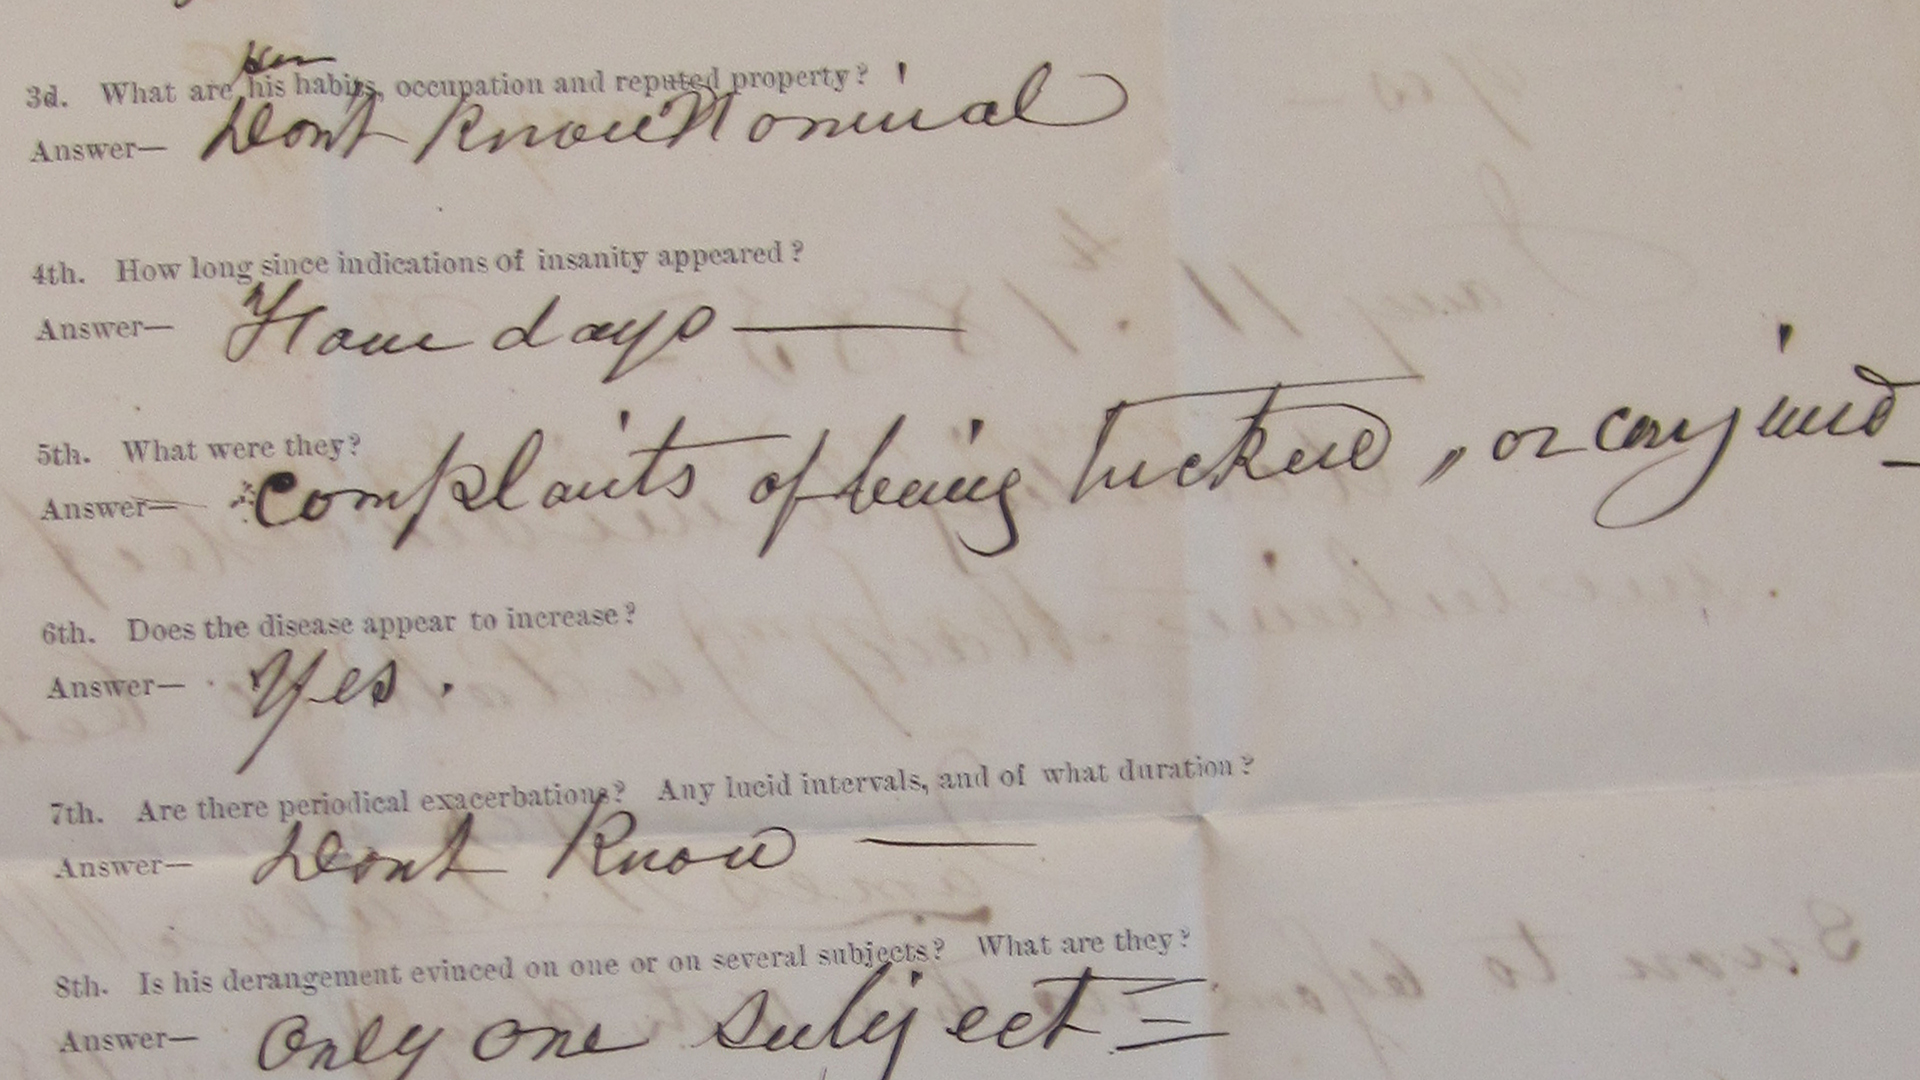 her
3d. What are his habits, occupation and reputed property?
Answer— Dont Know Nominal
4th. How long since indications of insanity appeared?
Answer— Four days —
5th. What were they?
Answer— Complaints of being tricked, or conjured
6th. Does the disease appear to increase?
Answer— Yes.
7th. Are there periodical exacerbations? Any lucid intervals, and of what duration?
Answer— Dont Know —
8th. Is his derangement evinced on one or on several subjects? What are they?
Answer— Only one subject